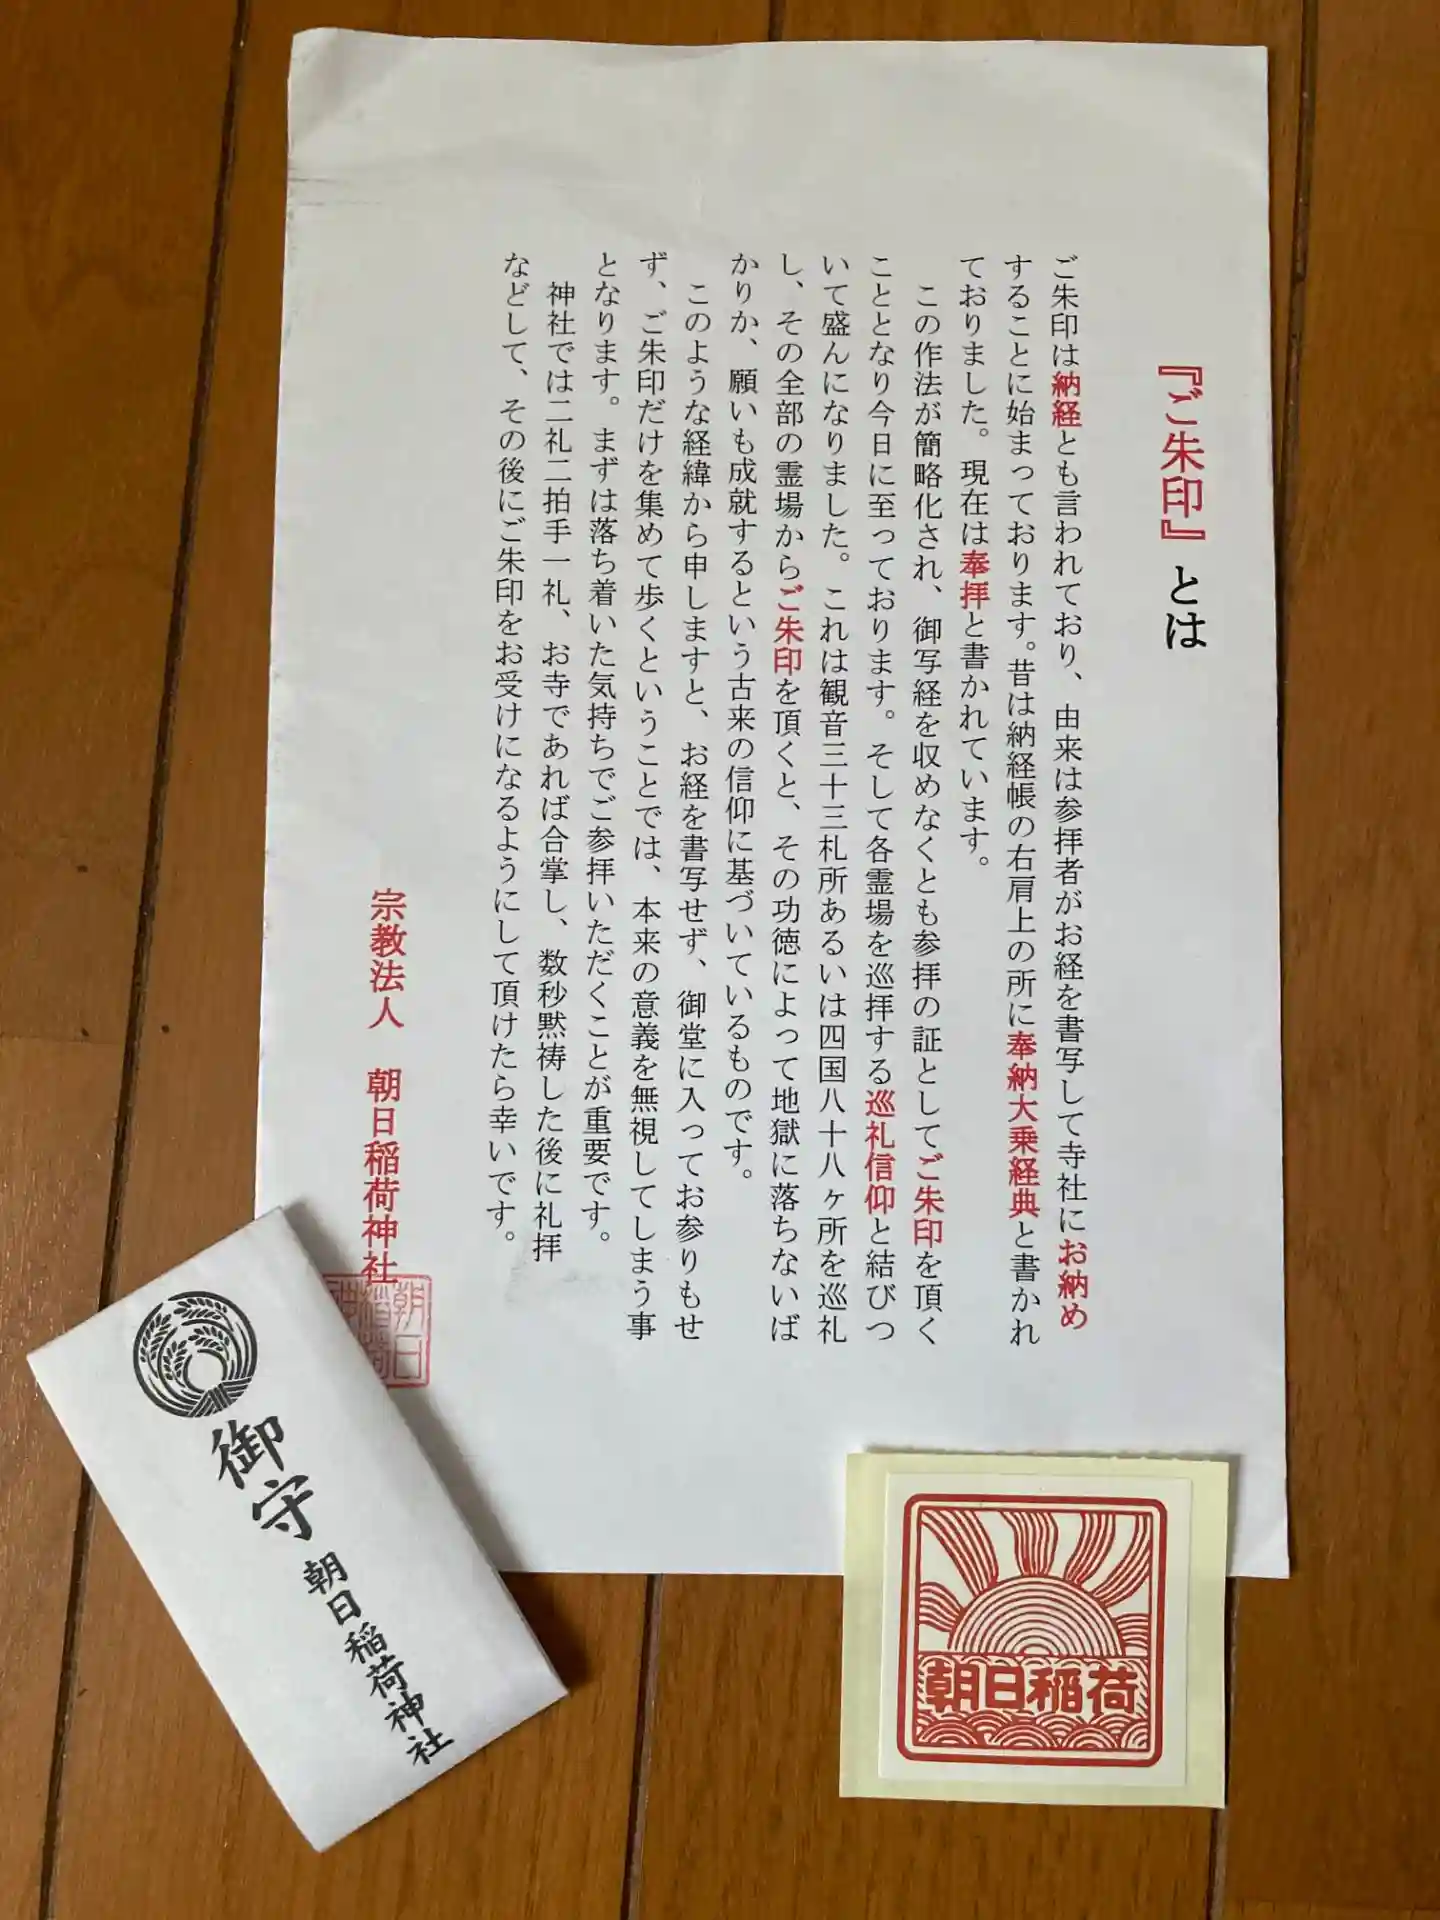 『ご朱印』とは
ご朱印は納経とも言われており、由来は参拝者がお経を書写して寺社にお納め
することに始まっております。昔は納経帳の右肩上の所に奉納大乗経典と書かれ
ておりました。現在は奉拝と書かれています。
この作法が簡略化され、御写経を収めなくとも参拝の証としてご朱印を頂く
こととなり今日に至っております。そして各霊場を巡拝する巡礼信仰と結びつ
いて盛んになりました。これは観音三十三札所あるいは四国八十八ヶ所を巡礼
し、その全部の霊場からご朱印を頂くと、その功徳によって地獄に落ちないば
かりか、願いも成就するという古来の信仰に基づいているものです。
このような経緯から申しますと、お経を書写せず、御堂に入ってお参りもせ
ず、ご朱印だけを集めて歩くということでは、本来の意義を無視してしまう事
となります。まずは落ち着いた気持ちでご参拝いただくことが重要です。
神社では二礼二拍手一礼、お寺であれば合掌し、数秒黙祷した後に礼拝
などして、その後にご朱印をお受けになるようにして頂けたら幸いです。
宗教法人 朝日稲荷神社
朝日
稲荷
御守
朝日稲荷神社
朝日稲荷